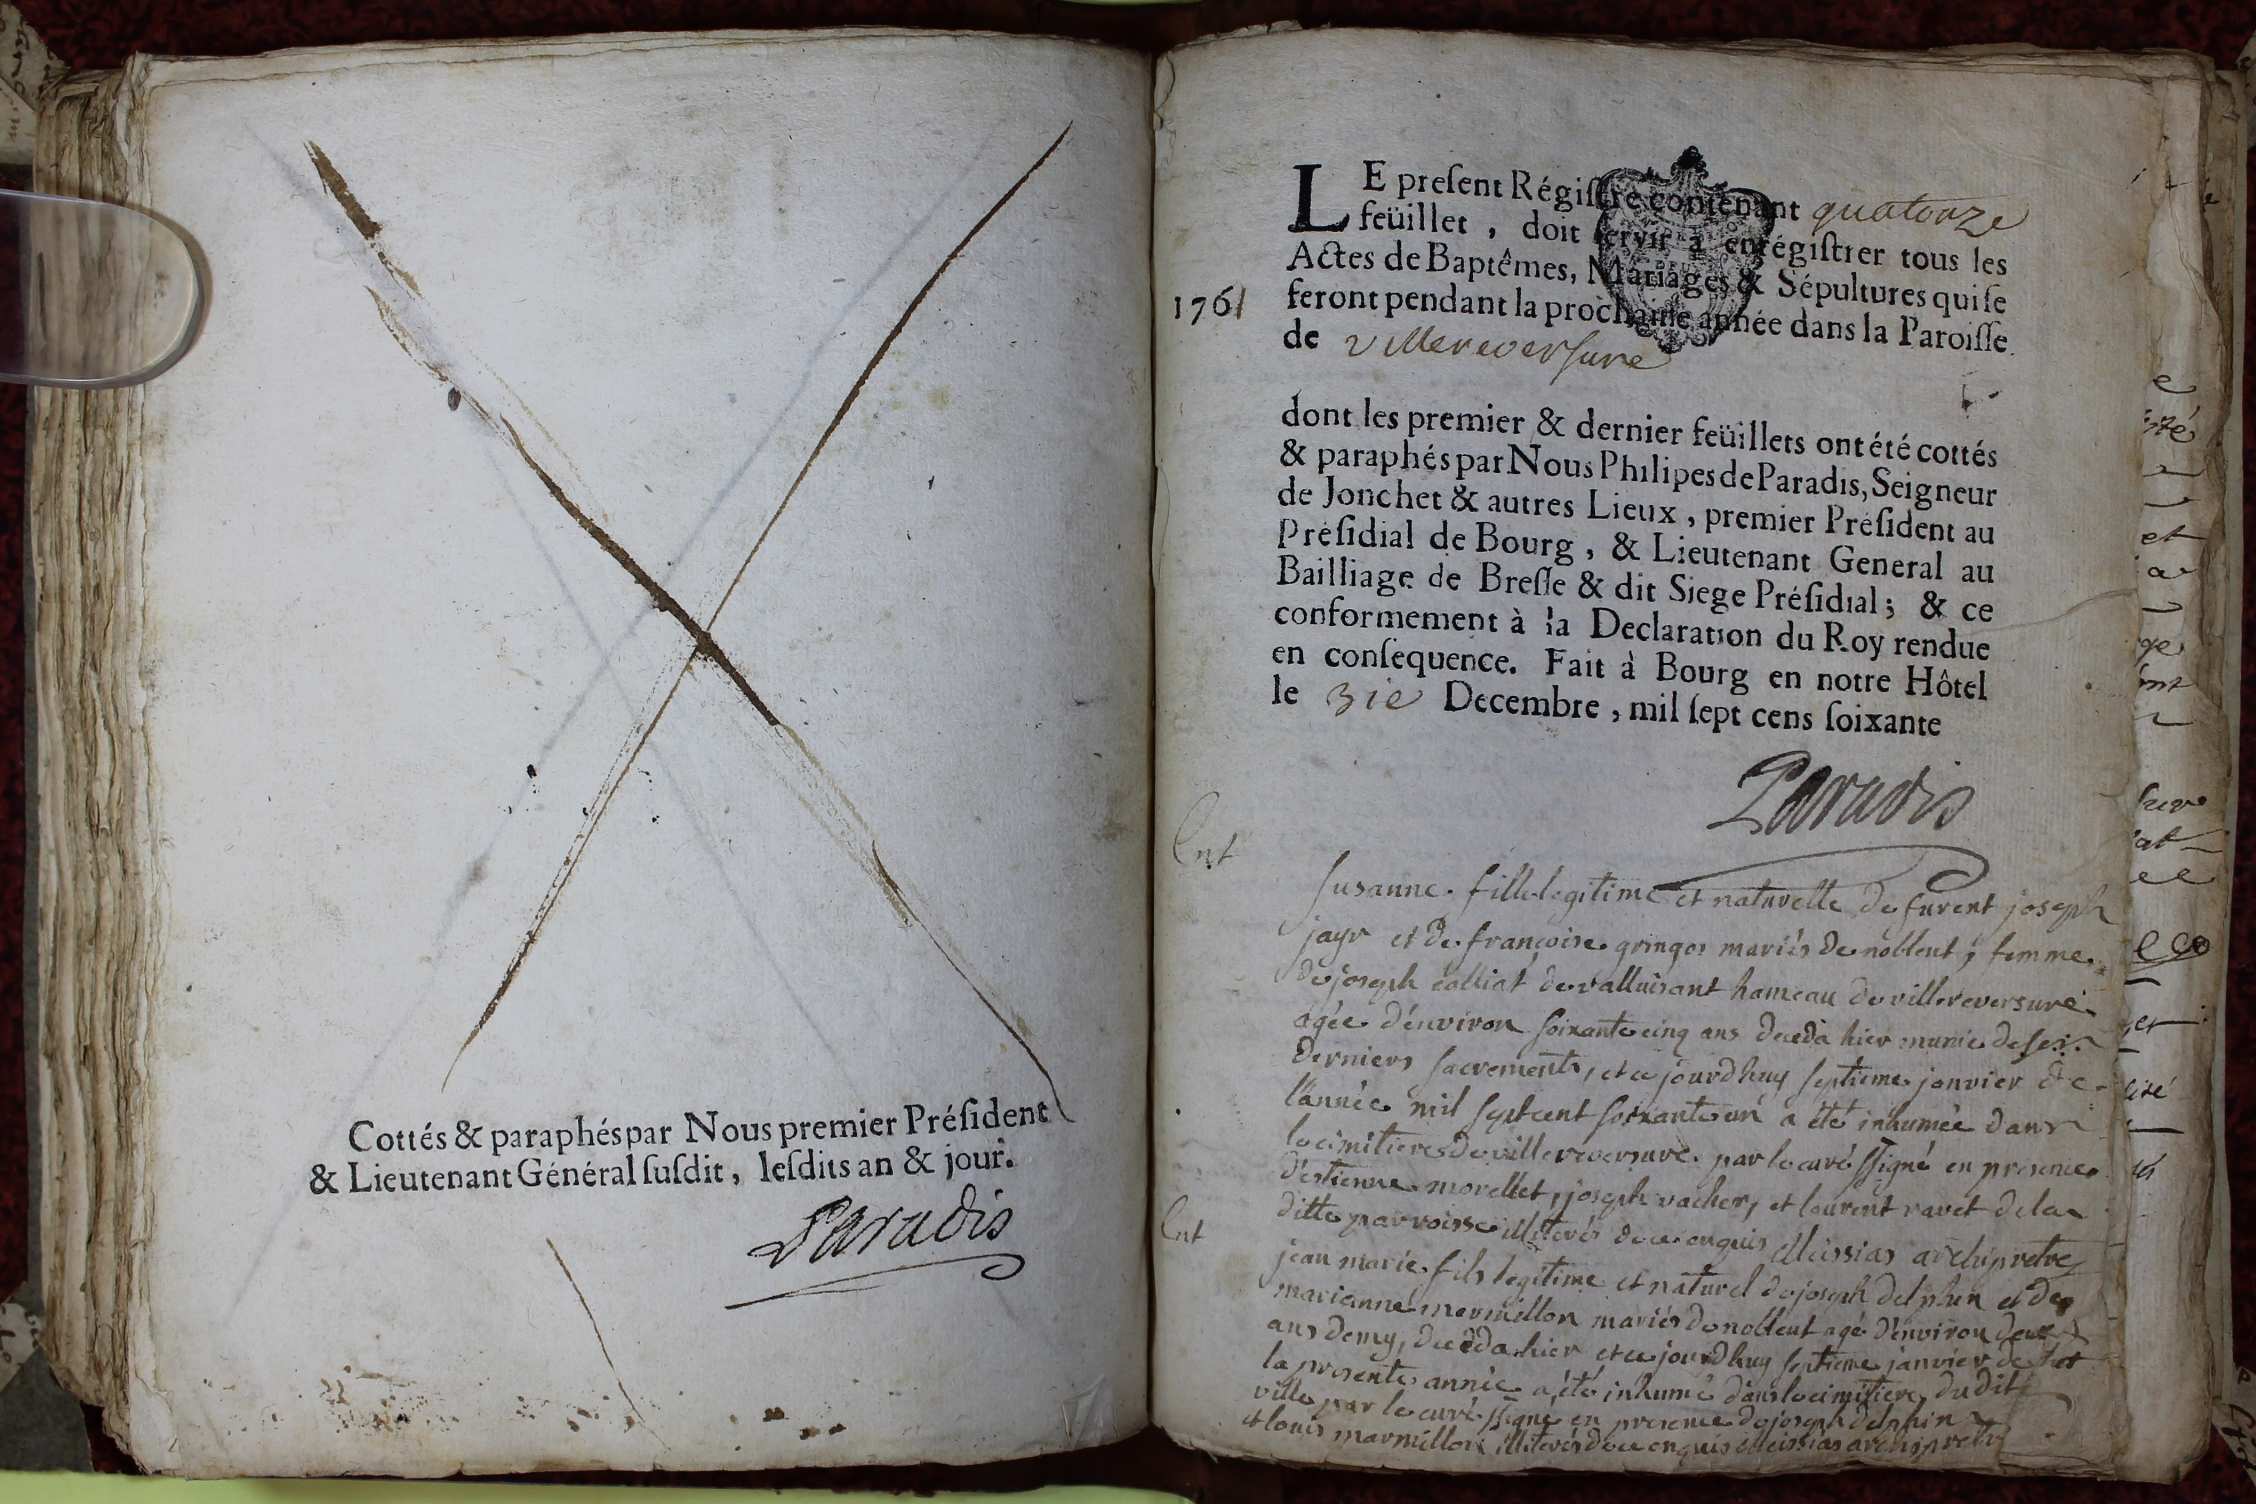 Cottés & paraphés par Nous premier Préſident
& Lieutenant Général ſuſdit, leſdits an & jour.
Paradis
LE preſent Régiſtre contenant quatorze
feüillet, doit ſervir à enrégiſtrer tous les
Actes de Baptêmes, Mariáges & Sépultures qui ſe
1761 feront pendant la prochaine année dans la Paroiſſe
de villereversure
dont les premier & dernier feüillets ont été cottés
& paraphés par Nous Philipes de Paradis, Seigneur
de Jonchet & autres Lieux, premier Préſident au
Préſidial de Bourg, & Lieutenant General au
Bailliage de Breſſe & dit Siege Préſidial; & ce
conformement à la Declaration du Roy rendue
en conſequence. Fait à Bourg en notre Hôtel
le 31e Decembre, mil ſept cens ſoixante
Paradis
Ent
susanne fille legitime et naturelle de furent joseph
jayr et de françoise mariés de noblent, femme
de joseph calliat de valluisant hameau de villereversure
agée d'environ soixante cinq ans deceda hier munie de ses
derniers sacrements, et ce jourd'huy septieme janvier de
l'année mil sept cent soixante un a été inhumée dans
le cimitiere de villereversure par le curé ssigné en presence
d'estienne morellet, joseph vacher, et laurent ravet de la
ditte parroisse illiterés de ce enquis Meissias archiprêtre
Ent
jean marie fils legitime et naturel de joseph delphin et de
marianne marmillon mariés de noblent agé d'environ deux
ans demy, deceda hier et ce jourd'huy septieme janvier de
la presente année a été inhumé dans le cimitiere du dit
ville par le curé ssigné en presence de joseph delphin
et louis marmillon illiterés de ce enquis Meissias archiprêtre